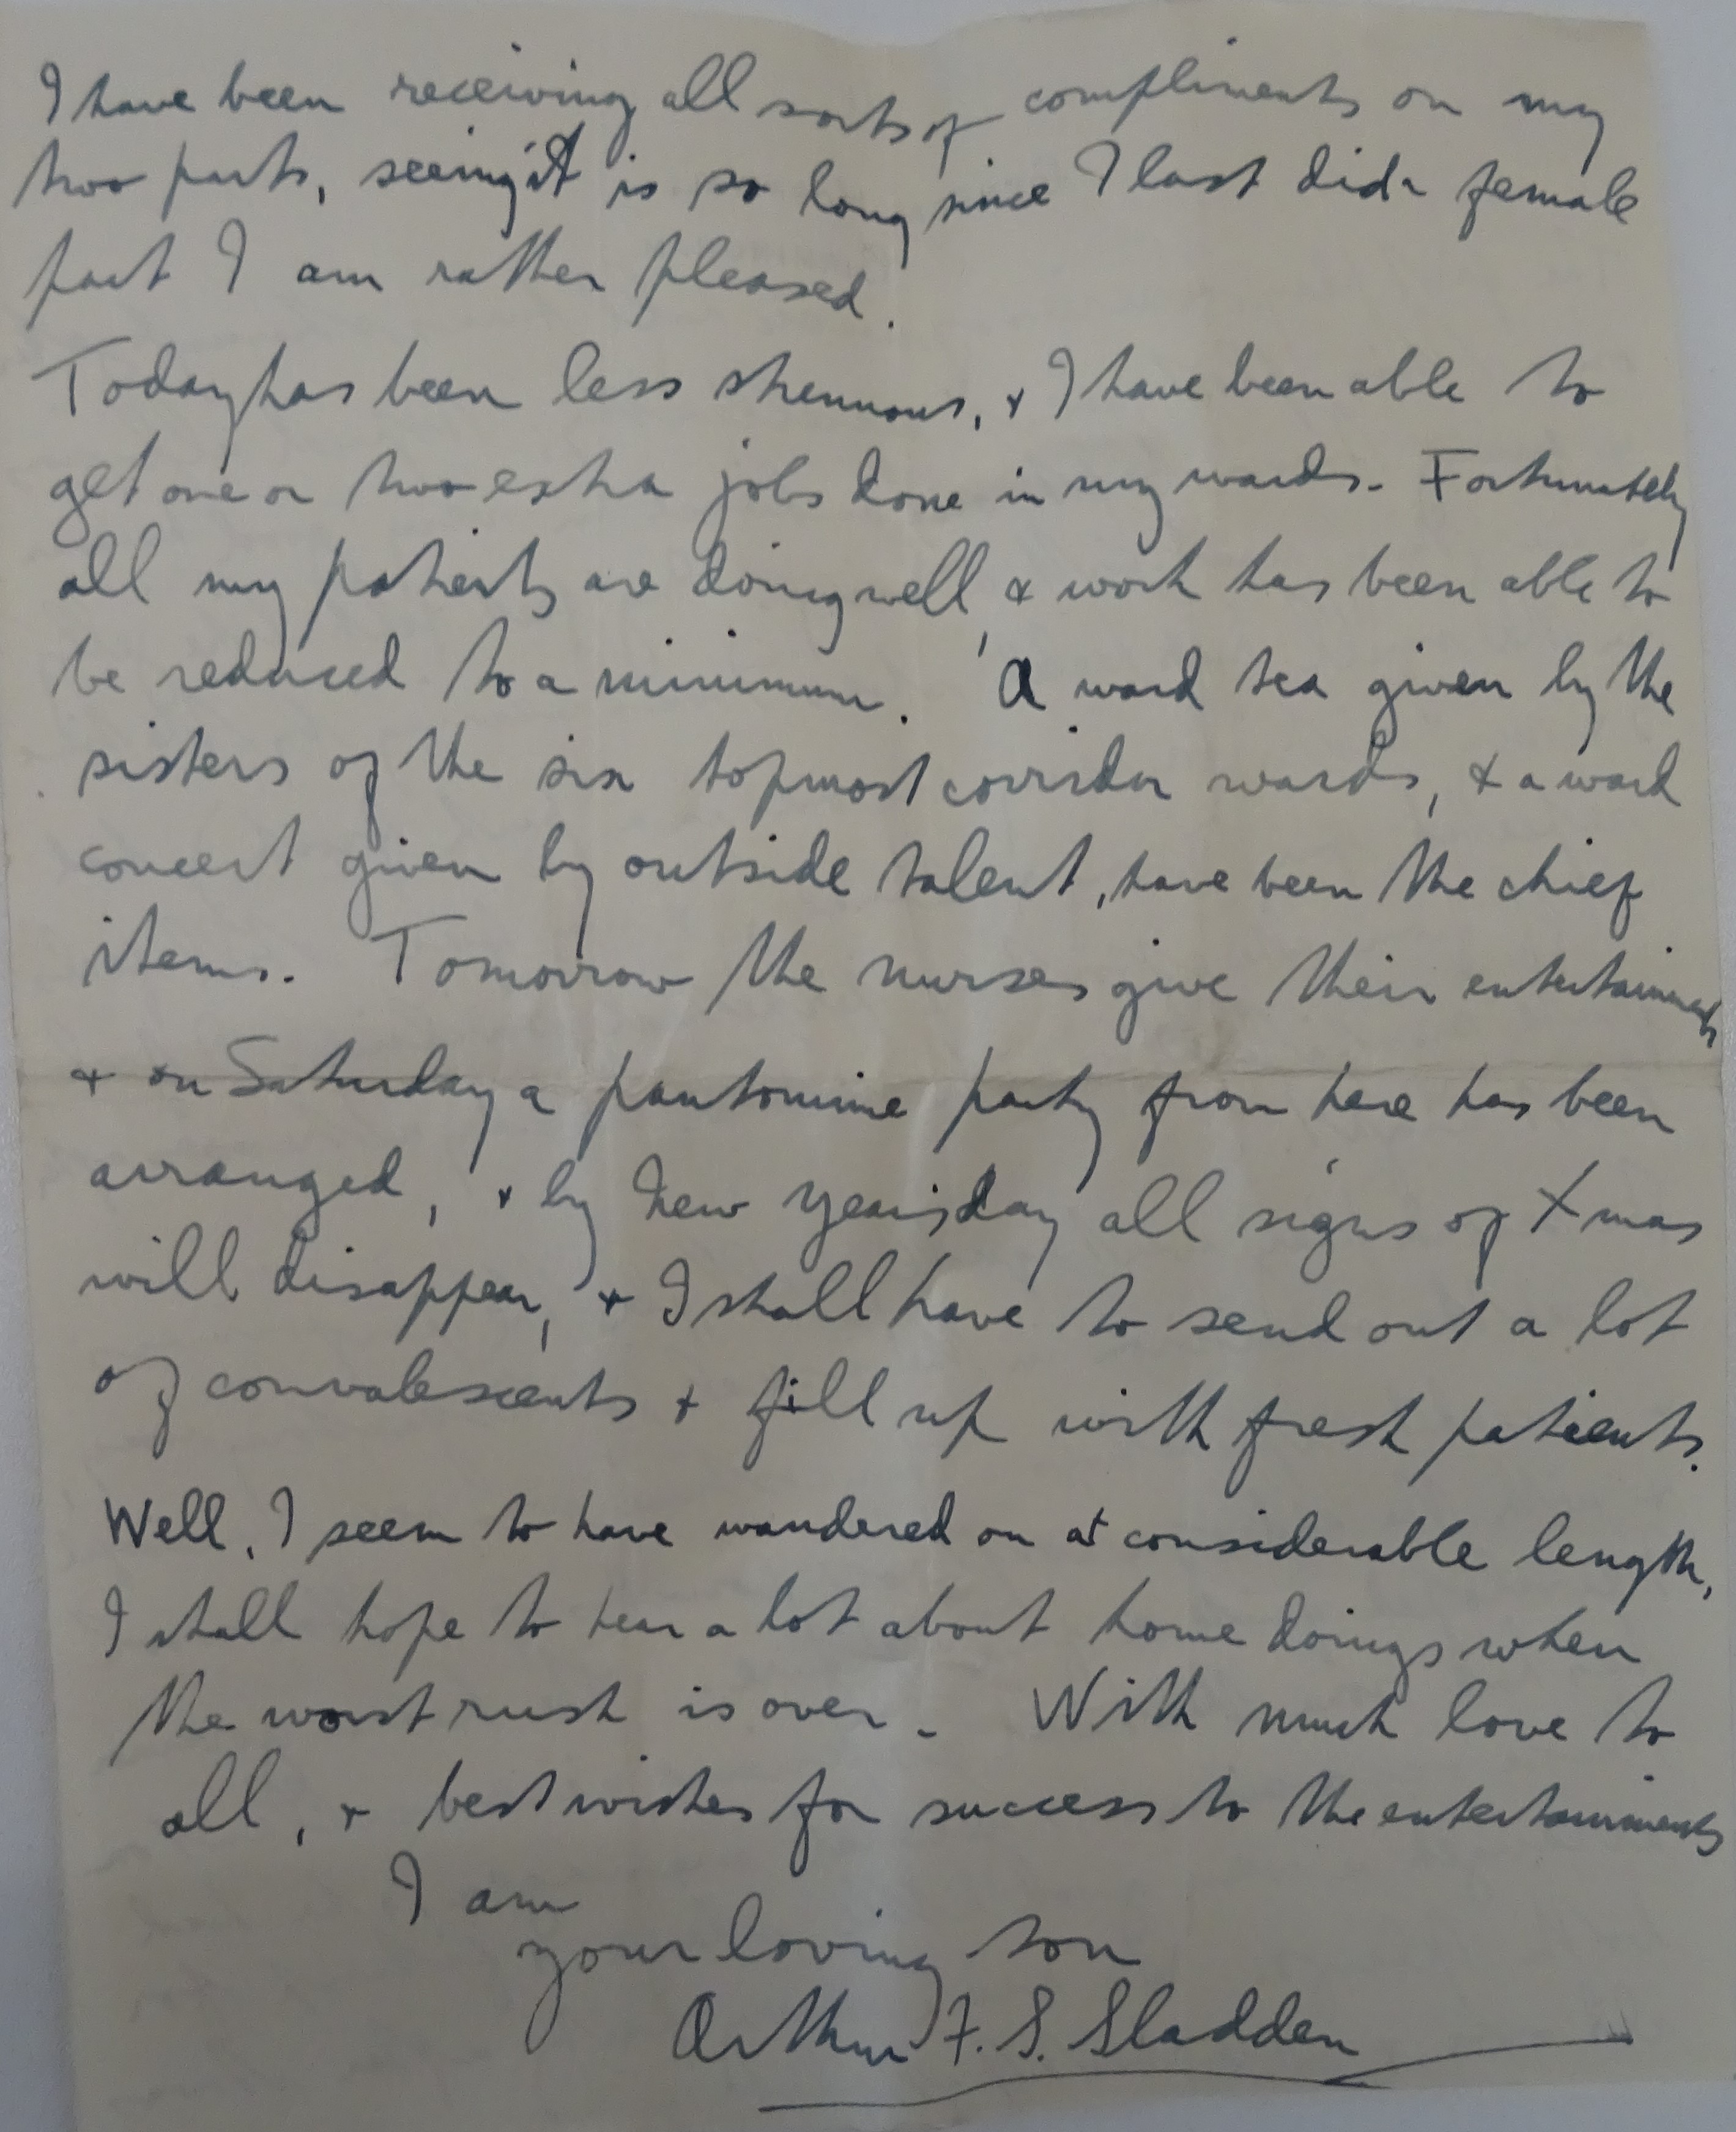 I have been receiving all sorts of compliments on my
two parts, seeing it is so long since I last did a female
part I am rather pleased.
Today has been less strenuous, & I have been able to
get one or two extra jobs done in my wards. Fortunately
all my patients are doing well, & work has been able to
be reduced to a minimum. A ward tea given by the
sisters of the six topmost corridor wards, & a ward
concert given by outside talent, have been the chief
items. Tomorrow the nurses give their entertainments
& on Saturday a pantomime party from here has been
arranged, & by New Year's day all signs of Xmas
will disappear, & I shall have to send out a lot
of convalescents & fill up with fresh patients.
Well, I seem to have wandered on at considerable length,
I shall hope to hear a lot about home doings when
the worst rush is over. With much love to
all, & best wishes for success to the entertainments
I am
your loving son
Arthur F. S. Sladden